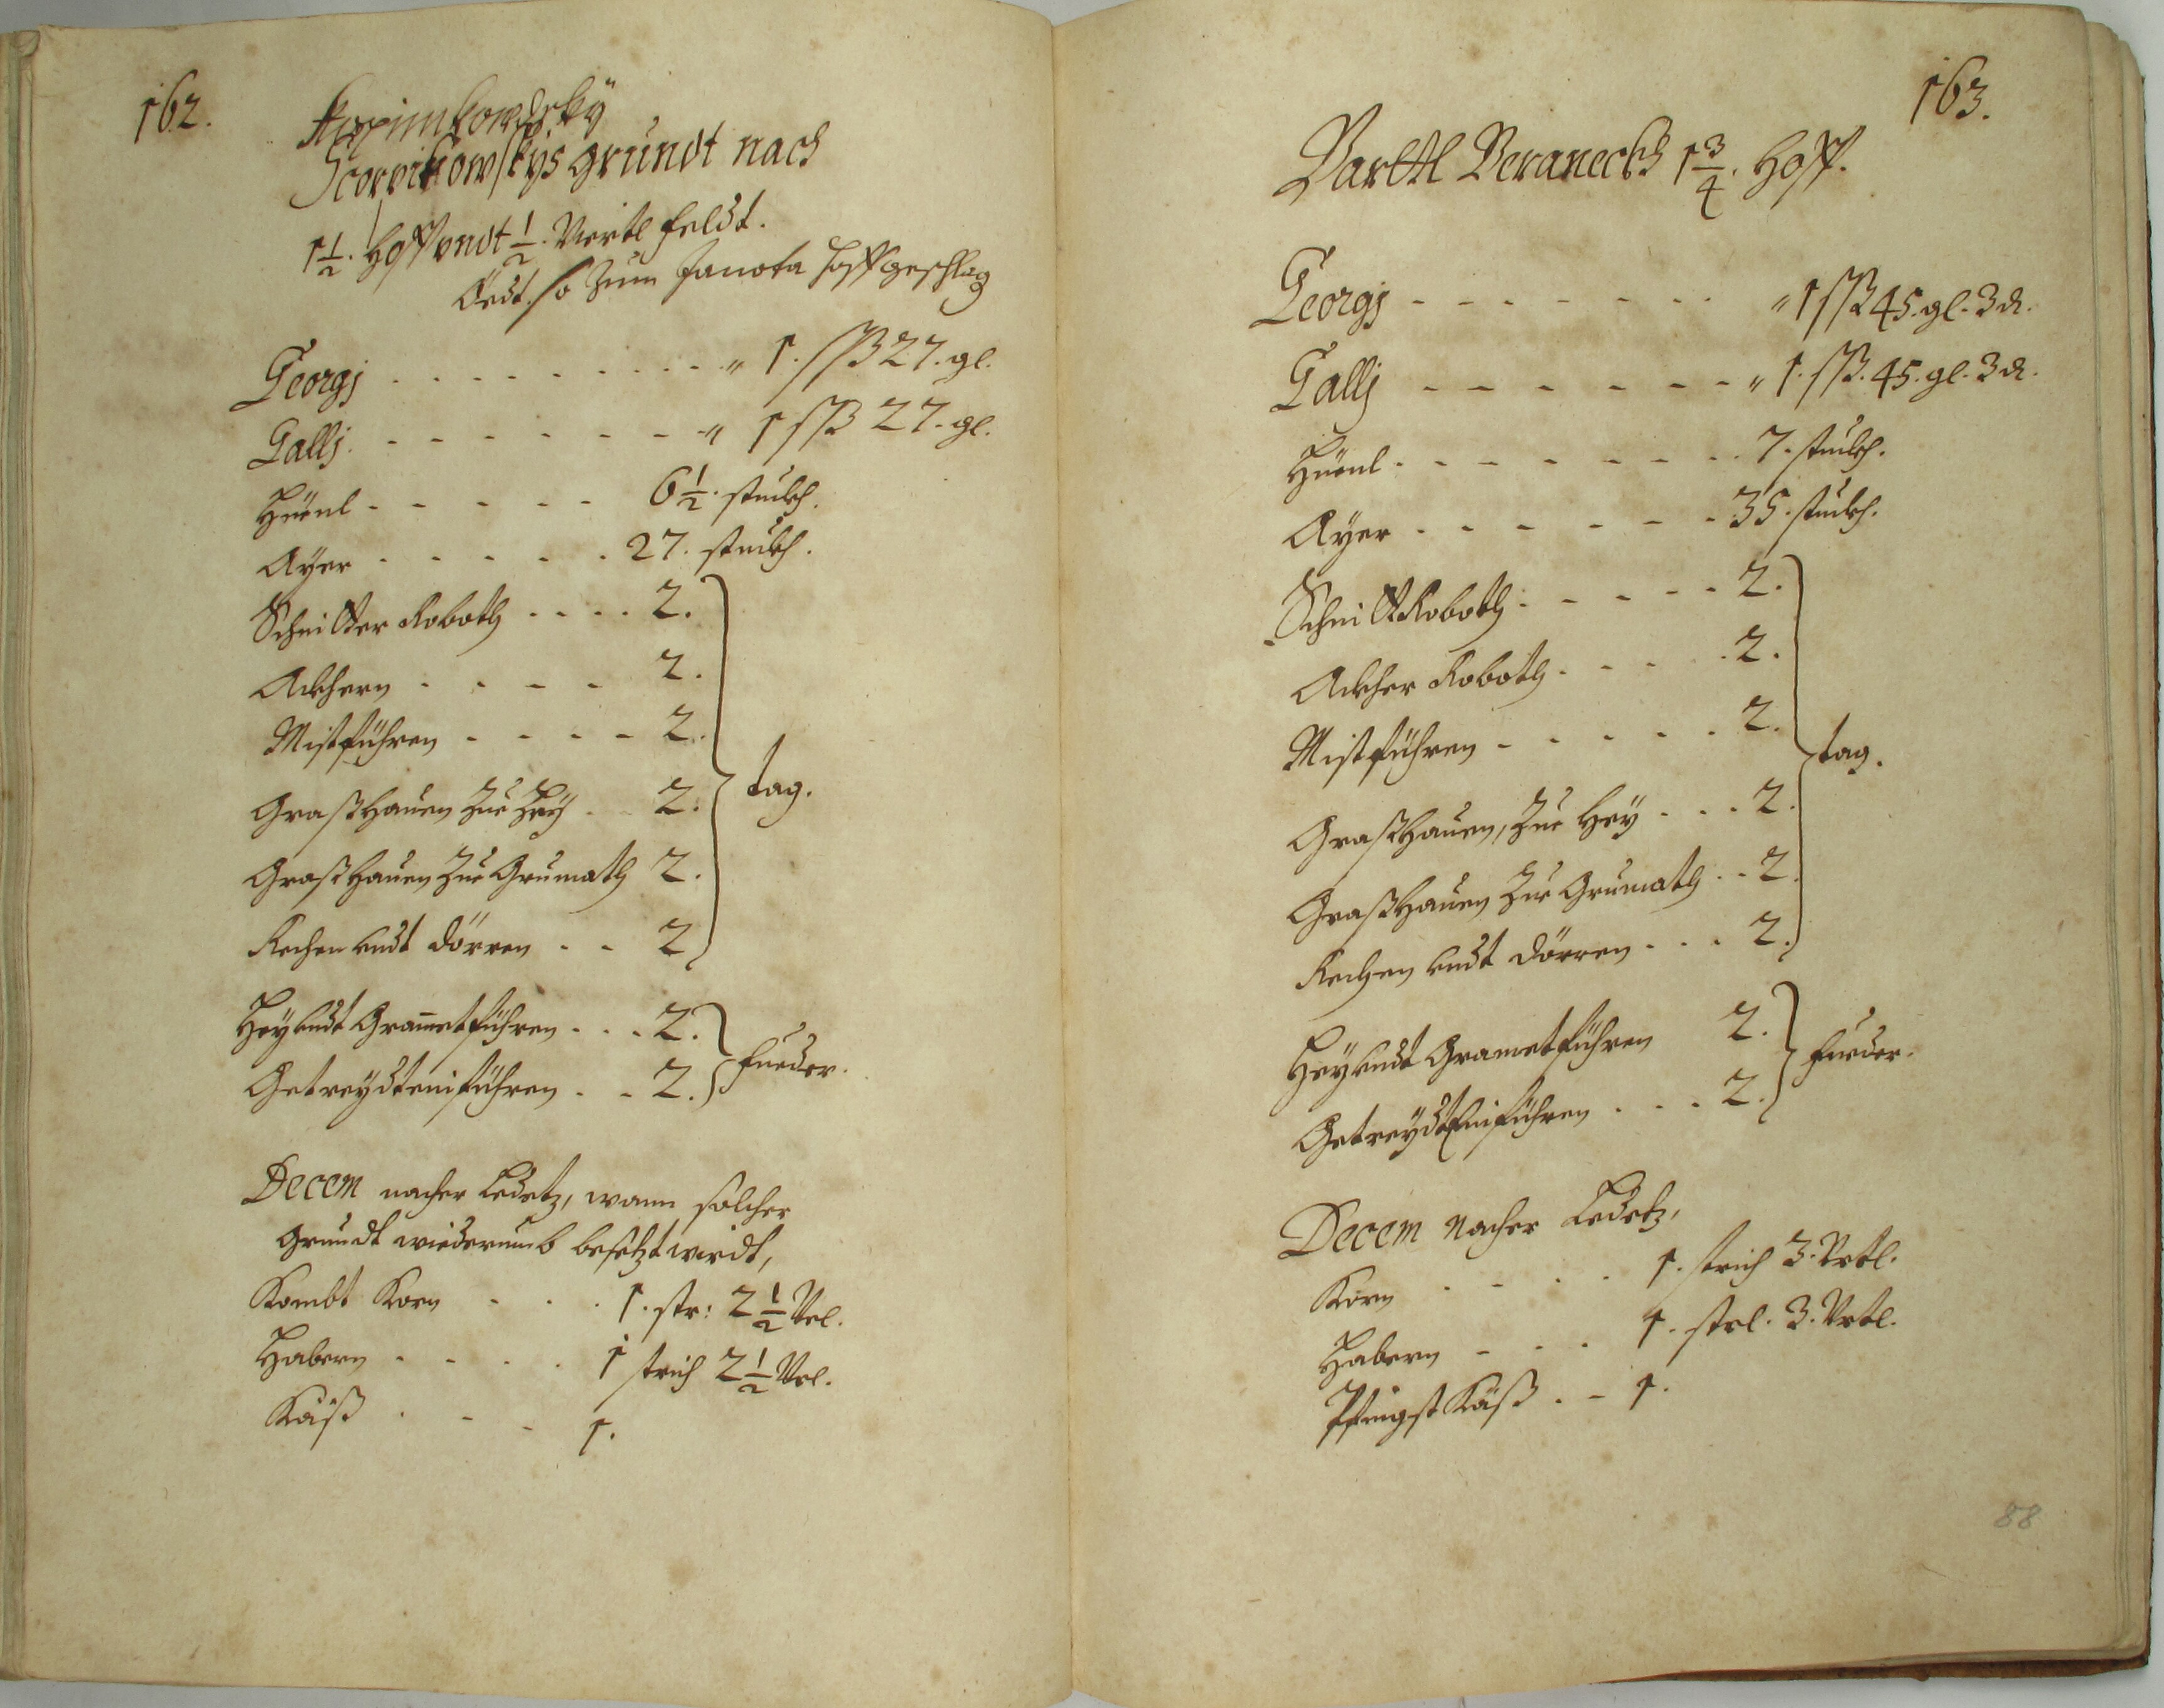 162.
Scorpikowskys grundt nach
1 1/2. Hoff vndt 1/2. Viertl feldt.
Öedt. so zum Janota Hoff geschlag
Georgj . . . . . . . . . " 1. ssß 27. gl.
Gallj. - - - - - - - " 1 ssß 27. gl.
Hüenl - - - - - 6 1/2. stuckh.
Ayer - - - - - 27. stuckh.
Schnitter Roboth . . . . 2.
Ackhern . - - - 2.
Mistführen - - - - 2.
Graßhauen zue Hey . . 2.
tag.
Graßhauen zue Grumath 2.
Rechen undt dörren . . 2
Hey undt Gram̄etführen . . . 2.
fueder.
Getreydteinführen . . 2.
Decem nacher Ledetz, wann solcher
grundt wiederumb besetzt wirdt,
Kombt Korn - . . 1. str: 2 1/2 Vtl.
Habern . - . . 1 strich 2 1/2 Vtl.
Käß . - - 1.
163.
Bartl Beraneckh 1 3/4. Hoff.
Georgj - - - - - - - " 1 ssß 45. gl. 3 d.
Gallj - - - - - - - " 1. ssß. 45. gl. 3 d.
Hüenl . - - - - - - . 7. stuckh.
Ayer . - - - - - - 35. stuckh.
Schnitt Roboth . - - - - 2.
Ackher Roboth . - - . 2.
Mistführen - - - - . 2.
tag.
Graßhauen, zue Hey . . . 2.
Graßhauen zue Grumath . . 2.
Rechen undt dörren . . . 2.
Hey undt Grametführen 2.
fueder.
Getreydt Einführen . . . 2.
Decem Nacher Ledetz,
Korn . - . . 1. strich 3. Vrtl.
Habern - . . 1. strl. 3. Vrtl.
Pfingst Käß . - 1.
88